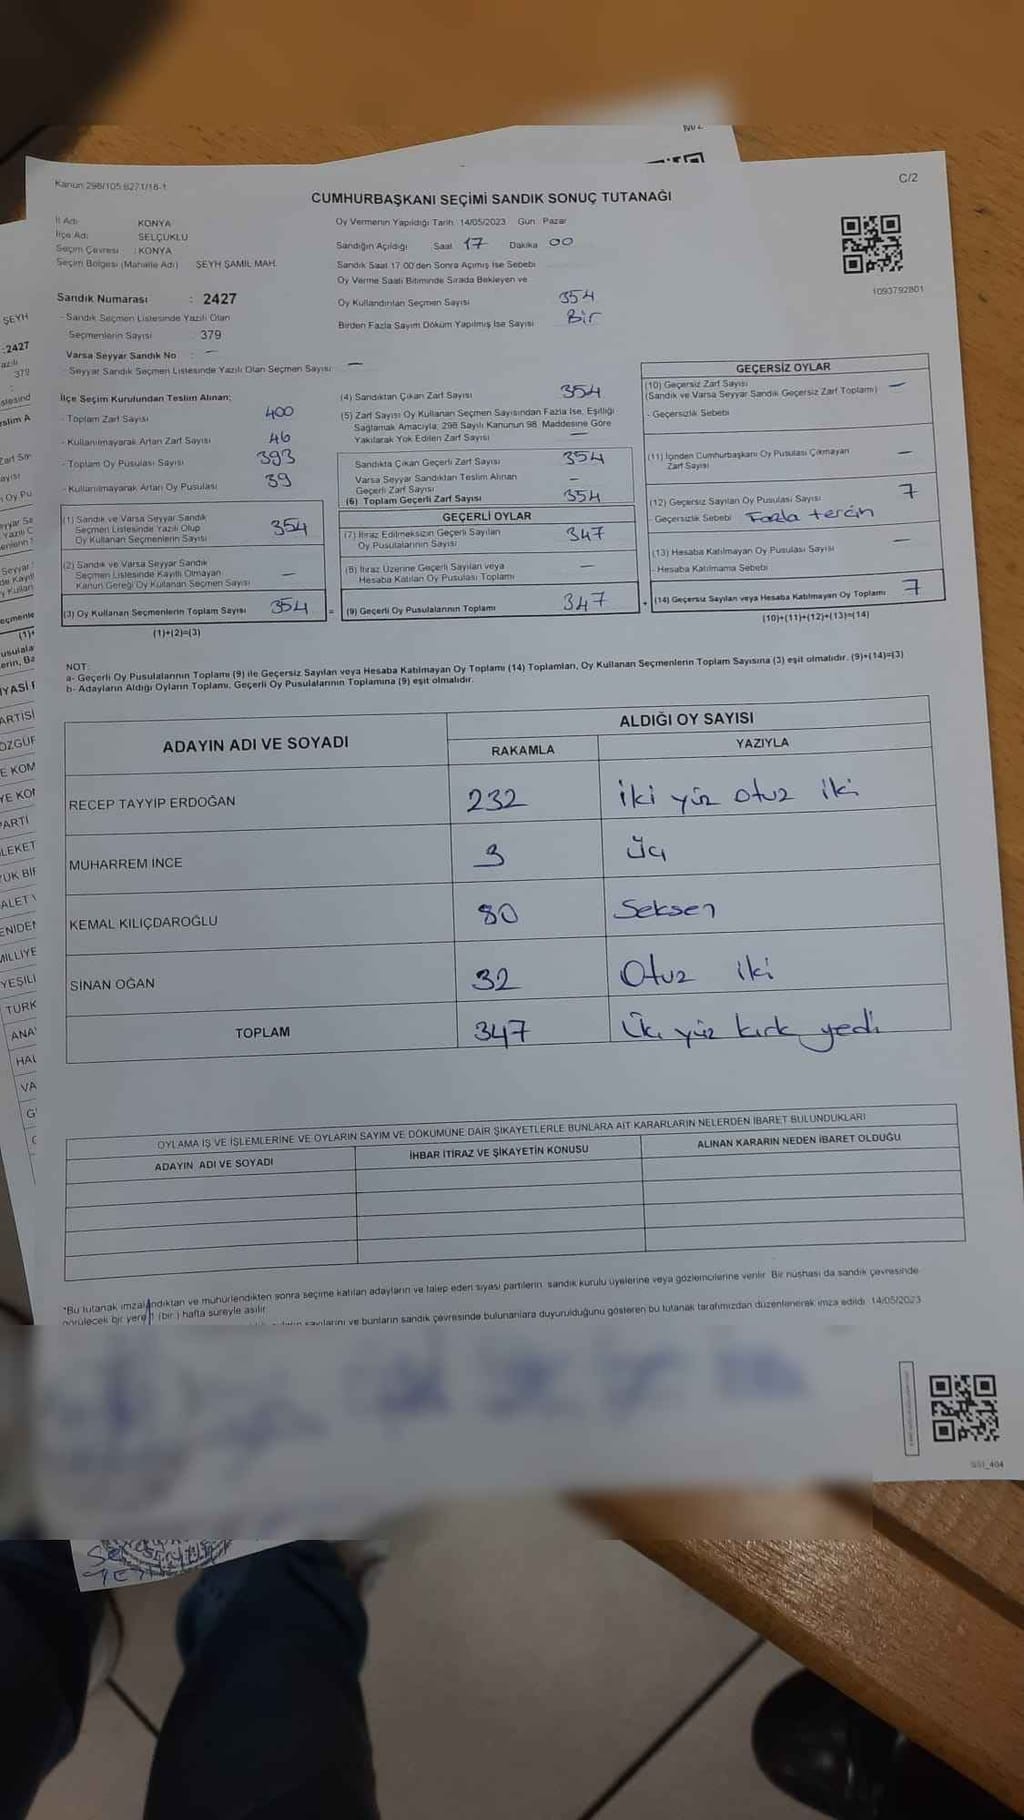 Kanun 298/105 6271/18-1
C/2
CUMHURBAŞKANI SEÇİMİ SANDIK SONUÇ TUTANAĞI
İl Adı KONYA
İlçe Adı SELÇUKLU
Seçim Çevresi : KONYA
Seçim Bölgesi (Mahalle Adı) ŞEYH ŞAMİL MAH.
Oy Vermenin Yapıldığı Tarih 14/05/2023 Gün Pazar
Sandığın Açıldığı Saat 17 Dakika 00
Sandık Saat 17 00'den Sonra Açılmış İse Sebebi
Oy Verme Saati Bitiminde Sırada Bekleyen ve
Oy Kullandırılan Seçmen Sayısı 354
Birden Fazla Sayım Döküm Yapılmış İse Sayısı Bir
1093792801
Sandık Numarası : 2427
- Sandık Seçmen Listesinde Yazılı Olan
Seçmenlerin Sayısı 379
Varsa Seyyar Sandık No : —
- Seyyar Sandık Seçmen Listesinde Yazılı Olan Seçmen Sayısı —
İlçe Seçim Kurulundan Teslim Alınan;
- Toplam Zarf Sayısı 400
- Kullanılmayarak Artan Zarf Sayısı 46
- Toplam Oy Pusulası Sayısı 393
- Kullanılmayarak Artan Oy Pusulası 39
(1) Sandık ve Varsa Seyyar Sandık
Seçmen Listesinde Yazılı Olup
Oy Kullanan Seçmenlerin Sayısı 354
(2) Sandık ve Varsa Seyyar Sandık
Seçmen Listesinde Kayıtlı Olmayan
Kanun Gereği Oy Kullanan Seçmen Sayısı —
(3) Oy Kullanan Seçmenlerin Toplam Sayısı 354 =
(1)+(2)=(3)
(4) Sandıktan Çıkan Zarf Sayısı 354
(5) Zarf Sayısı Oy Kullanan Seçmen Sayısından Fazla İse, Eşitliği
Sağlamak Amacıyla, 298 Sayılı Kanunun 98. Maddesine Göre
Yakılarak Yok Edilen Zarf Sayısı —
Sandıkta Çıkan Geçerli Zarf Sayısı 354
Varsa Seyyar Sandıktan Teslim Alınan
Geçerli Zarf Sayısı —
(6) Toplam Geçerli Zarf Sayısı 354
GEÇERLİ OYLAR
(7) İtiraz Edilmeksizin Geçerli Sayılan
Oy Pusulalarının Sayısı 347
(8) İtiraz Üzerine Geçerli Sayılan veya
Hesaba Katılan Oy Pusulası Toplamı —
(9) Geçerli Oy Pusulalarının Toplamı 347 +
GEÇERSİZ OYLAR
(10) Geçersiz Zarf Sayısı
(Sandık ve Varsa Seyyar Sandık Geçersiz Zarf Toplamı) —
- Geçersizlik Sebebi
(11) İçinden Cumhurbaşkanı Oy Pusulası Çıkmayan
Zarf Sayısı —
(12) Geçersiz Sayılan Oy Pusulası Sayısı 7
- Geçersizlik Sebebi Fazla tercih
(13) Hesaba Katılmayan Oy Pusulası Sayısı —
- Hesaba Katılmama Sebebi
(14) Geçersiz Sayılan veya Hesaba Katılmayan Oy Toplamı 7
(10)+(11)+(12)+(13)=(14)
NOT:
a- Geçerli Oy Pusulalarının Toplamı (9) ile Geçersiz Sayılan veya Hesaba Katılmayan Oy Toplamı (14) Toplamları, Oy Kullanan Seçmenlerin Toplam Sayısına (3) eşit olmalıdır. (9)+(14)=(3)
b- Adayların Aldığı Oyların Toplamı, Geçerli Oy Pusulalarının Toplamına (9) eşit olmalıdır.
ADAYIN ADI VE SOYADI
ALDIĞI OY SAYISI
RAKAMLA YAZIYLA
RECEP TAYYİP ERDOĞAN 232 İki yüz otuz iki
MUHARREM İNCE 3 Üç
KEMAL KILIÇDAROĞLU 80 Seksen
SİNAN OĞAN 32 Otuz iki
TOPLAM 347 Üç yüz kırk yedi
OYLAMA İŞ VE İŞLEMLERİNE VE OYLARIN SAYIM VE DÖKÜMÜNE DAİR ŞİKAYETLERLE BUNLARA AİT KARARLARIN NELERDEN İBARET BULUNDUKLARI
ADAYIN ADI VE SOYADI İHBAR İTİRAZ VE ŞİKAYETİN KONUSU ALINAN KARARIN NEDEN İBARET OLDUĞU
*Bu tutanak imzalandıktan ve mühürlendikten sonra seçime katılan adayların ve talep eden siyasi partilerin sandık kurulu üyelerine veya gözlemcilerine verilir. Bir nüshası da sandık çevresinde
görülecek bir yere 1 (bir) hafta süreyle asılır
ve bunların sandık çevresinde bulunanlara duyurulduğunu gösteren bu tutanak tarafımızdan düzenlenerek imza edildi. 14/05/2023